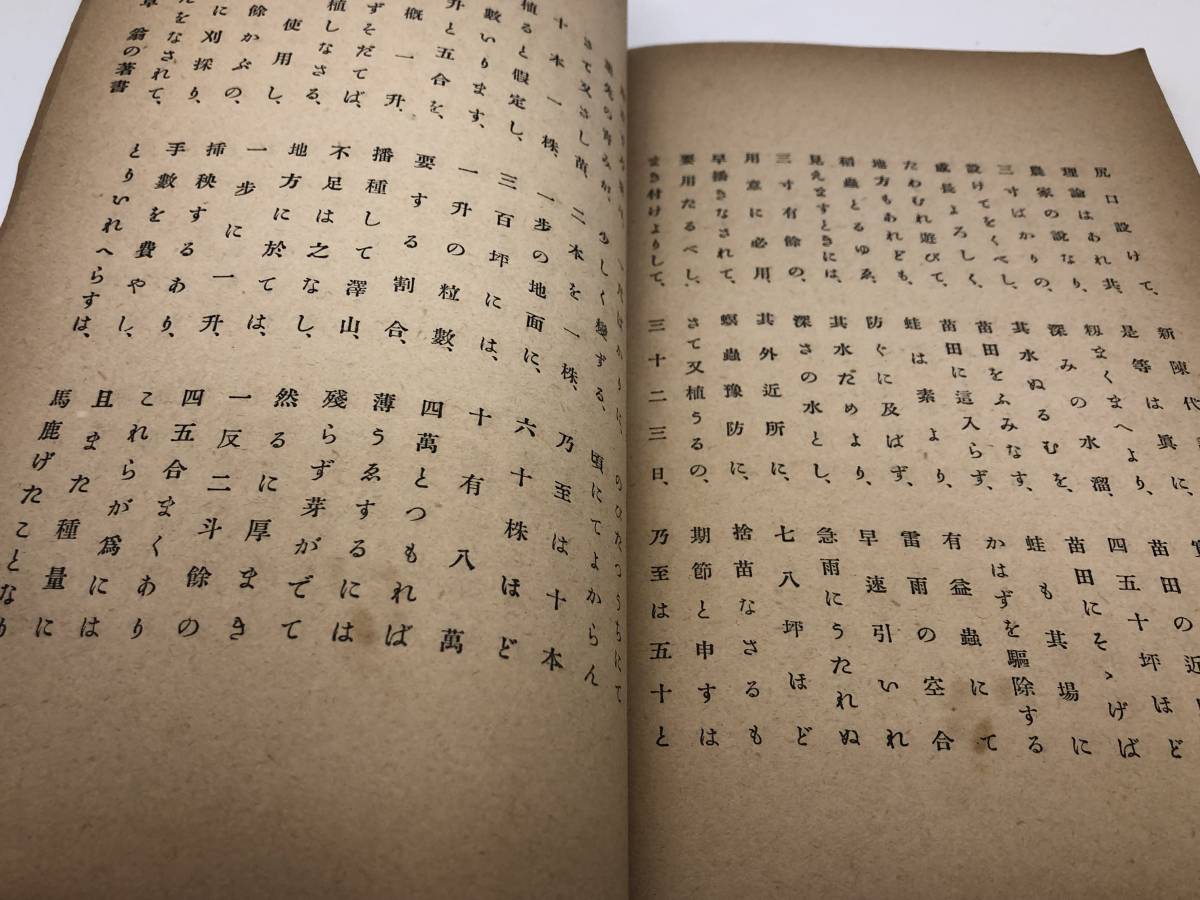 尻口設けて、新陳代
理論はあれ共、是等は眞に、
農家の說なり、籾まくまへより、苗田の近
三寸ばかりの、深みの水溜、四五十坪ほど
設けてをくべし、其水ぬるむを、苗田にそゝげば
成長よろしく、苗田をふみなす、蛙も其場に
たわむれ遊びて、苗田に這入らず、かはずを驅除する
地方もあれども、蛙は素より、有益蟲にて
稻蟲とるゆゑ、防ぐに及ばず、雷雨の空合
見えますときには、其水だめより、早速引いれ
三寸有餘の、深さの水とし、急雨にうたれぬ
用意に必用、其外近所に、七八坪ほど
早播きなされて、螟蟲豫防に、捨苗なさるも
要用たるべし、さて又植うるの、期節と申すは
まき付けよりして、三十二三日、乃至は五十と
のびたつうちにて
少しく變ずる、頃にてよからん
さて又さし苗、二本を一株、乃至は十本
十本一株、一步の地面に、六十株ほど
植ると假定し、三百坪には、十有八萬
數いります、一升の粒數、四萬とつもれば
升と五合を、要する割合、薄うゑするには
概一升、播種して澤山、殘らず芽がでて
ずそだてば、不足は之なし、然るに厚まき
植しなさる、地方に於ては、一反二斗餘の
使用し、一步に一升、四五合まくあり
餘かぶの、挿秧するあり、これらが爲には
に刈採り、手數を費やし、且また種量には
をなされて、とりいれへらすは、馬鹿げたことなり
翁の著書